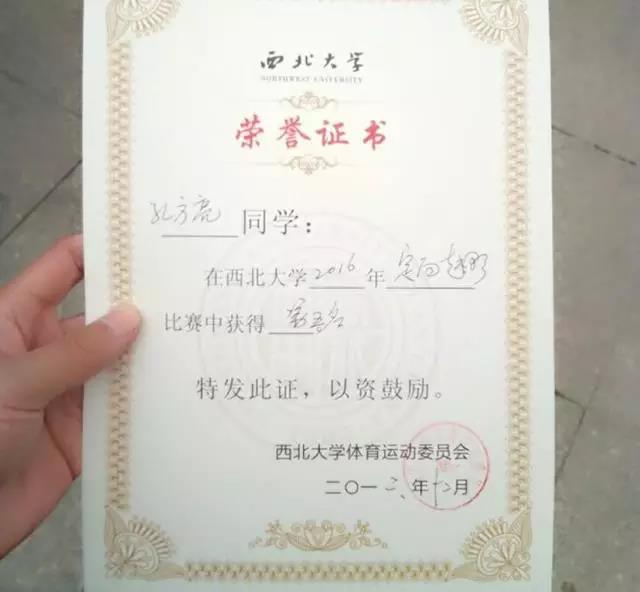 西北大学
NORTHWEST UNIVERSITY
荣誉证书
孔方亮同学：
在西北大学2016年定向越野
比赛中获得第五名
特发此证，以资鼓励。
西北大学体育运动委员会
二〇一六年十二月